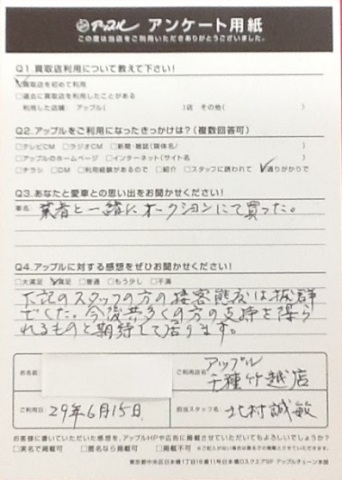 アップル アンケート用紙
この度は当店をご利用いただきありがとうございました。
Q1.買取店利用について教えて下さい!
□買取店を初めて利用
□過去に買取店を利用したことがある
利用した店舗: アップル( )店 その他( )
Q2.アップルをご利用になったきっかけは?(複数回答可)
□テレビCM □ラジオCM □新聞・雑誌(媒体名/ )
□アップルのホームページ □インターネット(サイト名 )
□チラシ □DM □利用経験があるので □紹介 □スタッフに誘われて □通りがかりで
Q3.あなたと愛車との思い出をお聞かせください!
車名
業者と一緒に、オークションにて買った。
Q4.アップルに対する感想をぜひお聞かせください!
□大満足 □満足 □普通 □もう少し □不満
下記のスタッフの方の接客態度は抜群
でした。今後共多くの方の支持を得ら
れるものと期待して居ります。
お名前
ご利用店名
アップル
千種竹越店
ご利用日
29年6月15日
担当スタッフ名
北村誠敏
お客様に書いていただいた感想を、アップルHPや広告に掲載させていただいてもよろしいでしょうか?
□実名で掲載可 □匿名なら掲載可 □掲載不可
※ご記入がない場合は匿名での掲載とさせていただきます。
東京都中央区日本橋1丁目16番11号日本橋DスクエアSF アップルチェーン本部